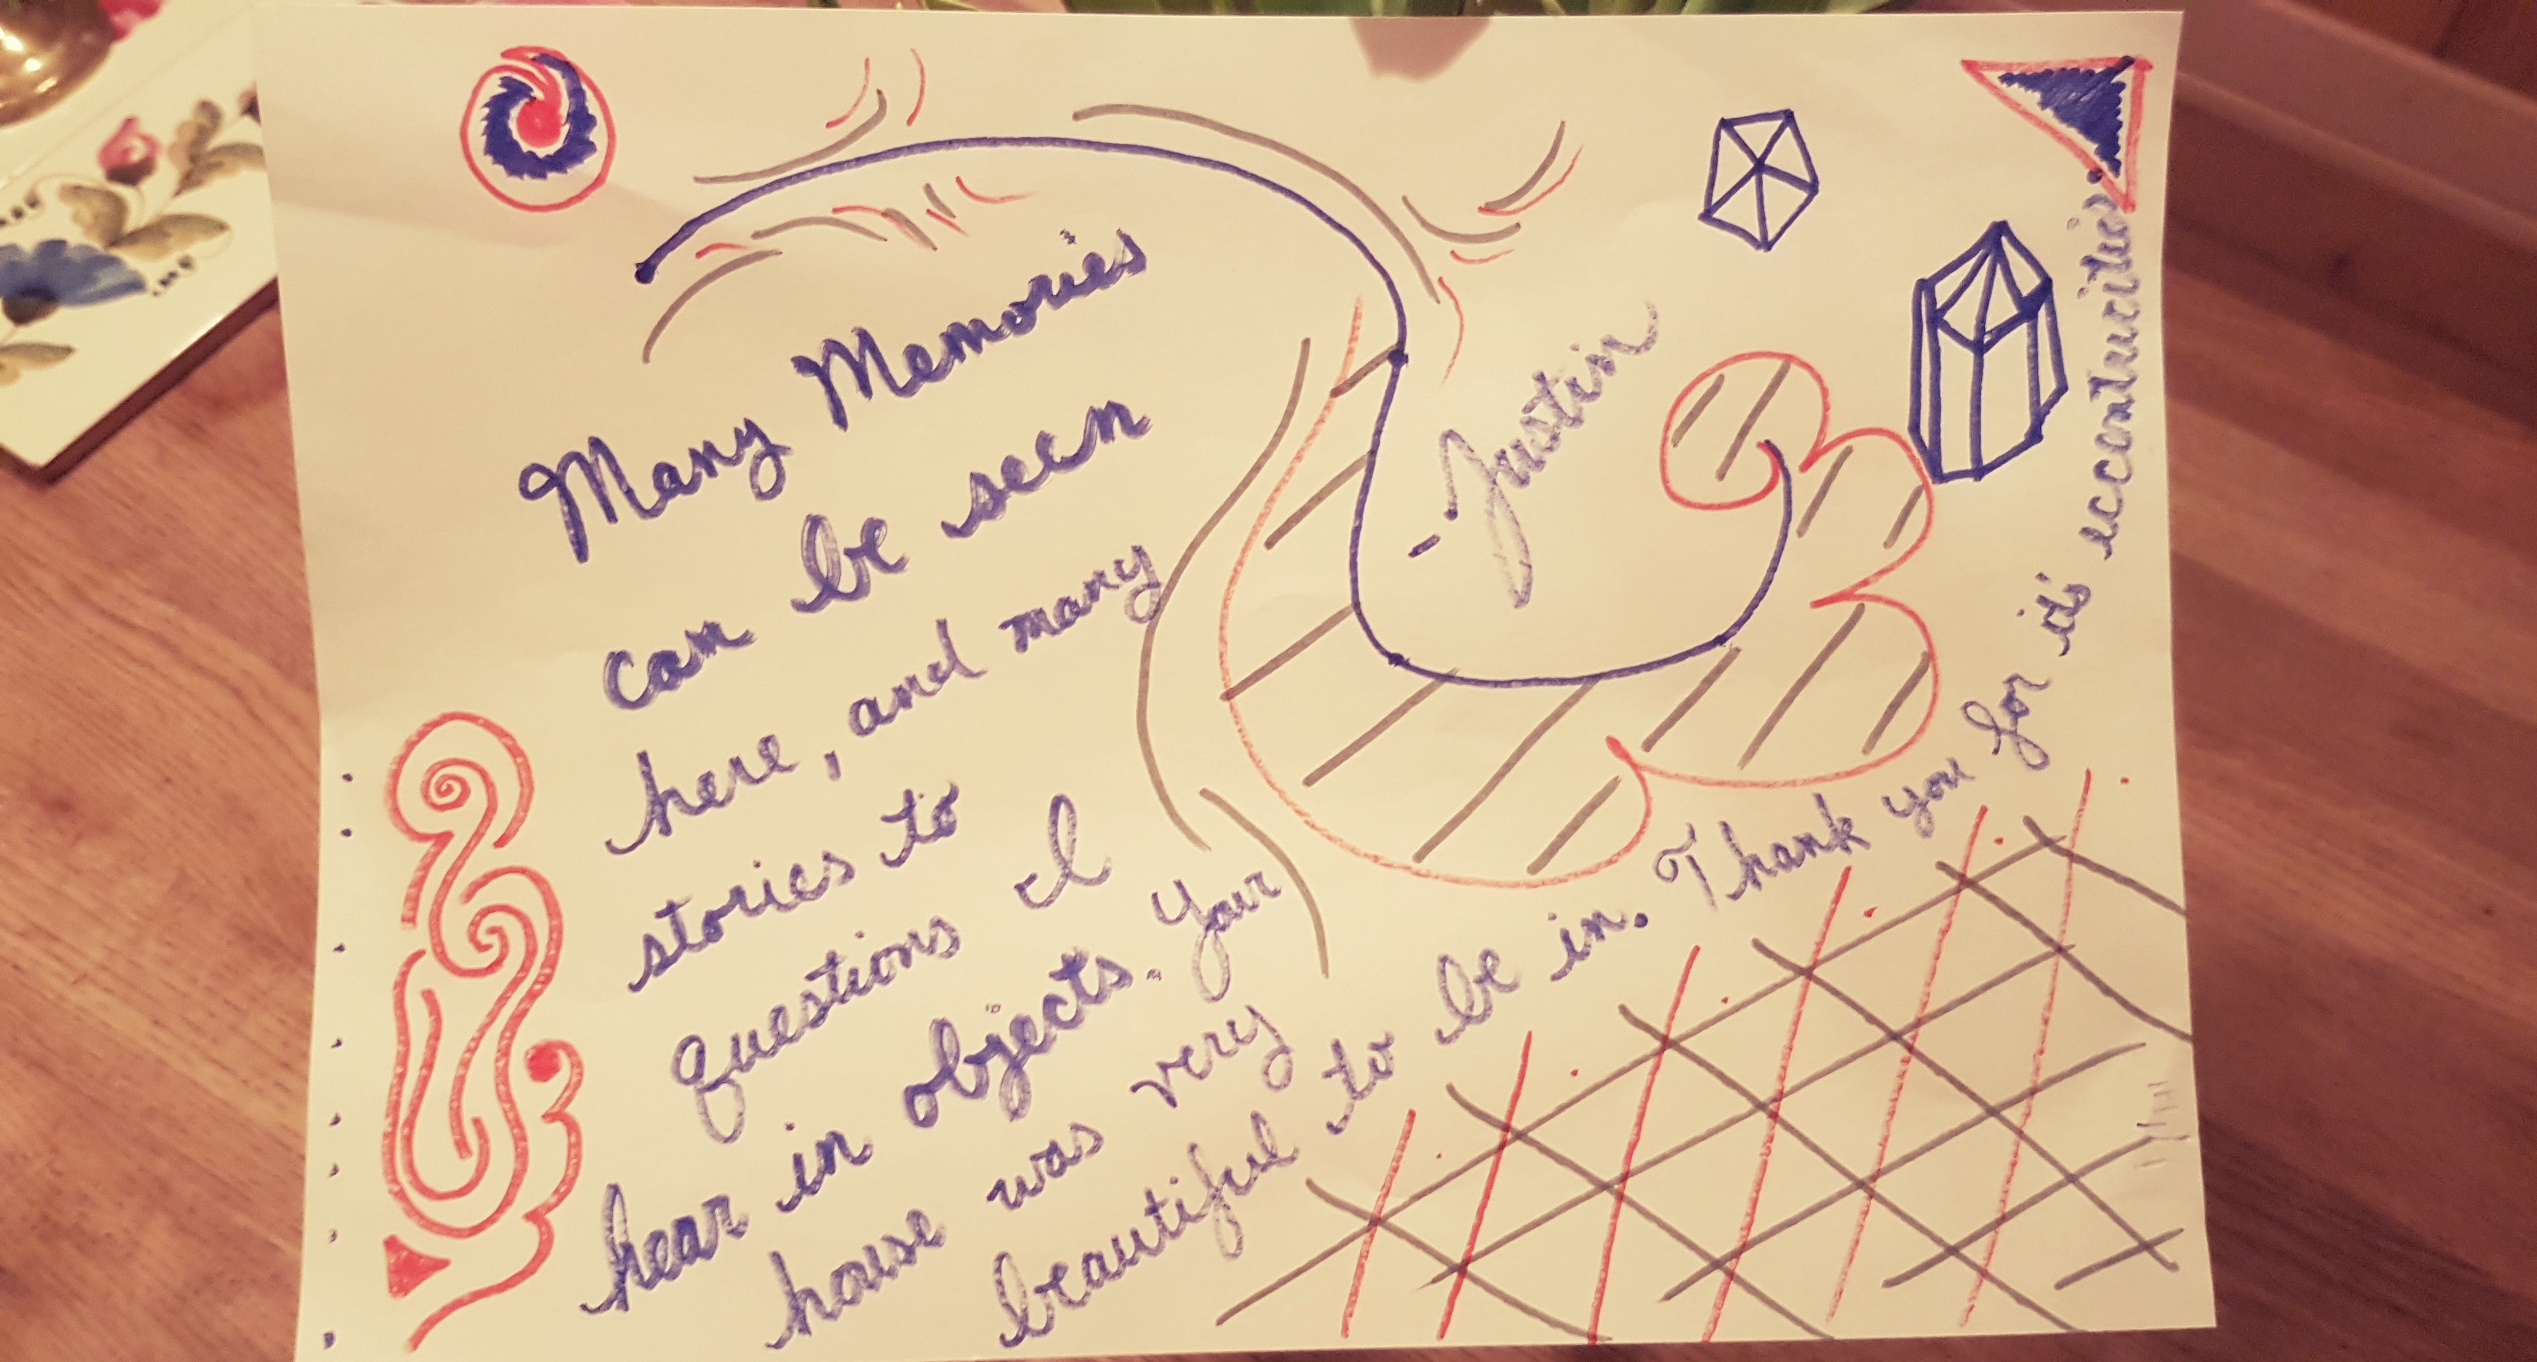 Many Memories
can be seen
here, and many
stories to
questions I
hear in objects. Your
house was very
beautiful to be in. Thank you for it's eccentricities.
- Justin